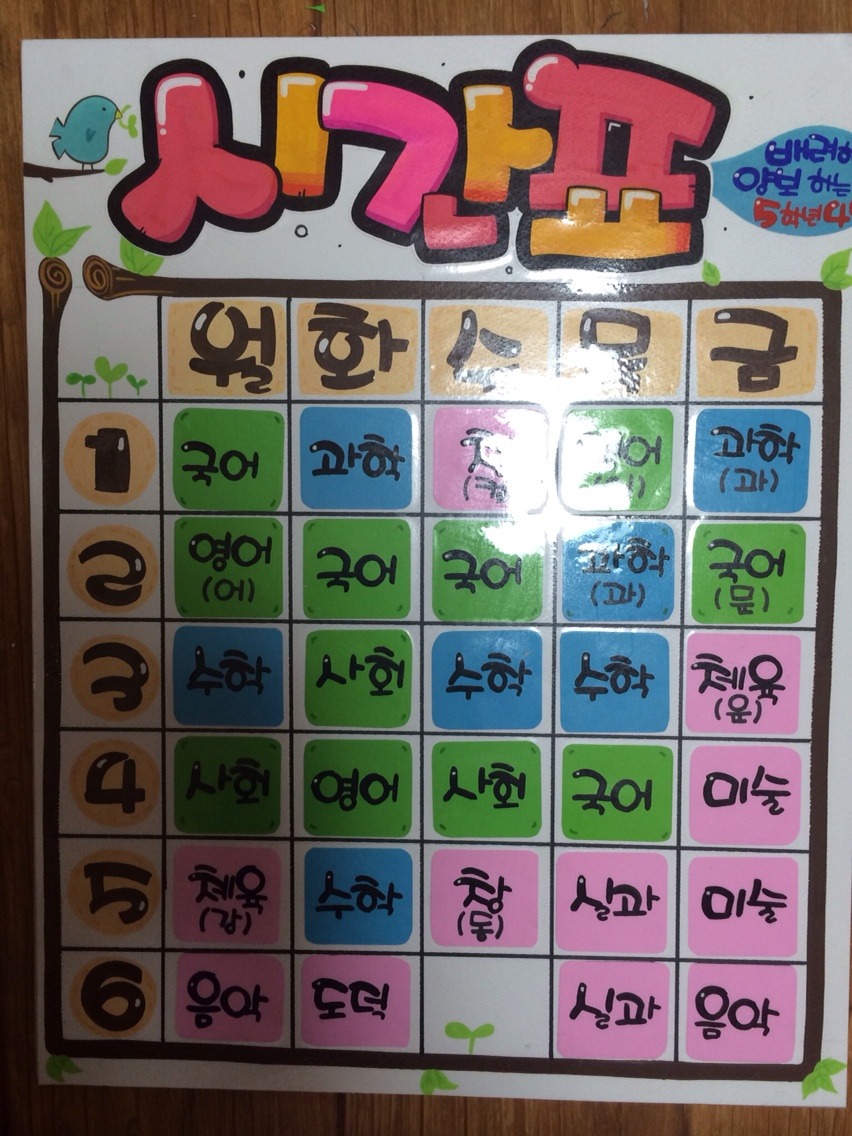 시간표
배려하
양보 하는
5학년4
월 화 수 목 금
1 국어 과학 과학
(과)
2 영어 국어 국어 과학 국어
(어) (과) (문)
3 수학 사회 수학 수학 체육
(운)
4 사회 영어 사회 국어 미술
5 체육 수학 창 실과 미술
(강) (동)
6 음악 도덕 실과 음악